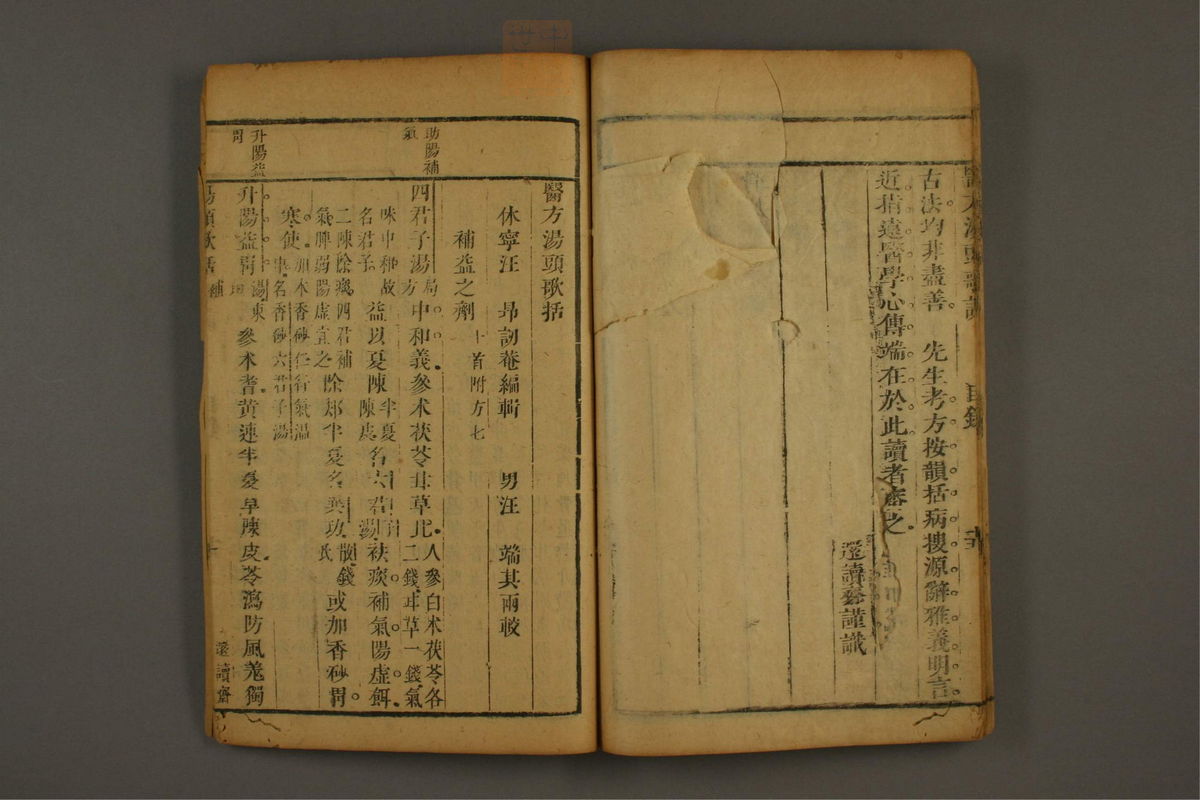 古法均非盡善 先生考方按韻括病搜源辭雅義明言
近指遠醫學心傳端在於此讀者審之
還讀齋謹識
醫方湯頭歌括
休寧汪 昂訒菴編輯 男汪 端其兩較
補益之劑 十首附方七
助陽補
氣
四君子湯 局方 中和義參朮茯苓甘草比 人參白朮茯苓各
二錢甘草一錢氣
味中和故
名君子
益以夏陳 半夏
陳皮 名六君 子
湯 祛痰補氣陽虛餌
二陳除痰四君補
氣脾弱陽虛宜之 除却半夏名異功 散錢
氏 或加香砂胃
寒使 加木香砂仁行氣溫
中名香砂六君子湯
升陽益
胃
升陽益胃 湯東
垣 參朮耆黃連半夏草陳皮苓瀉防風羗獨
湯頭歌括 補 還讀齋